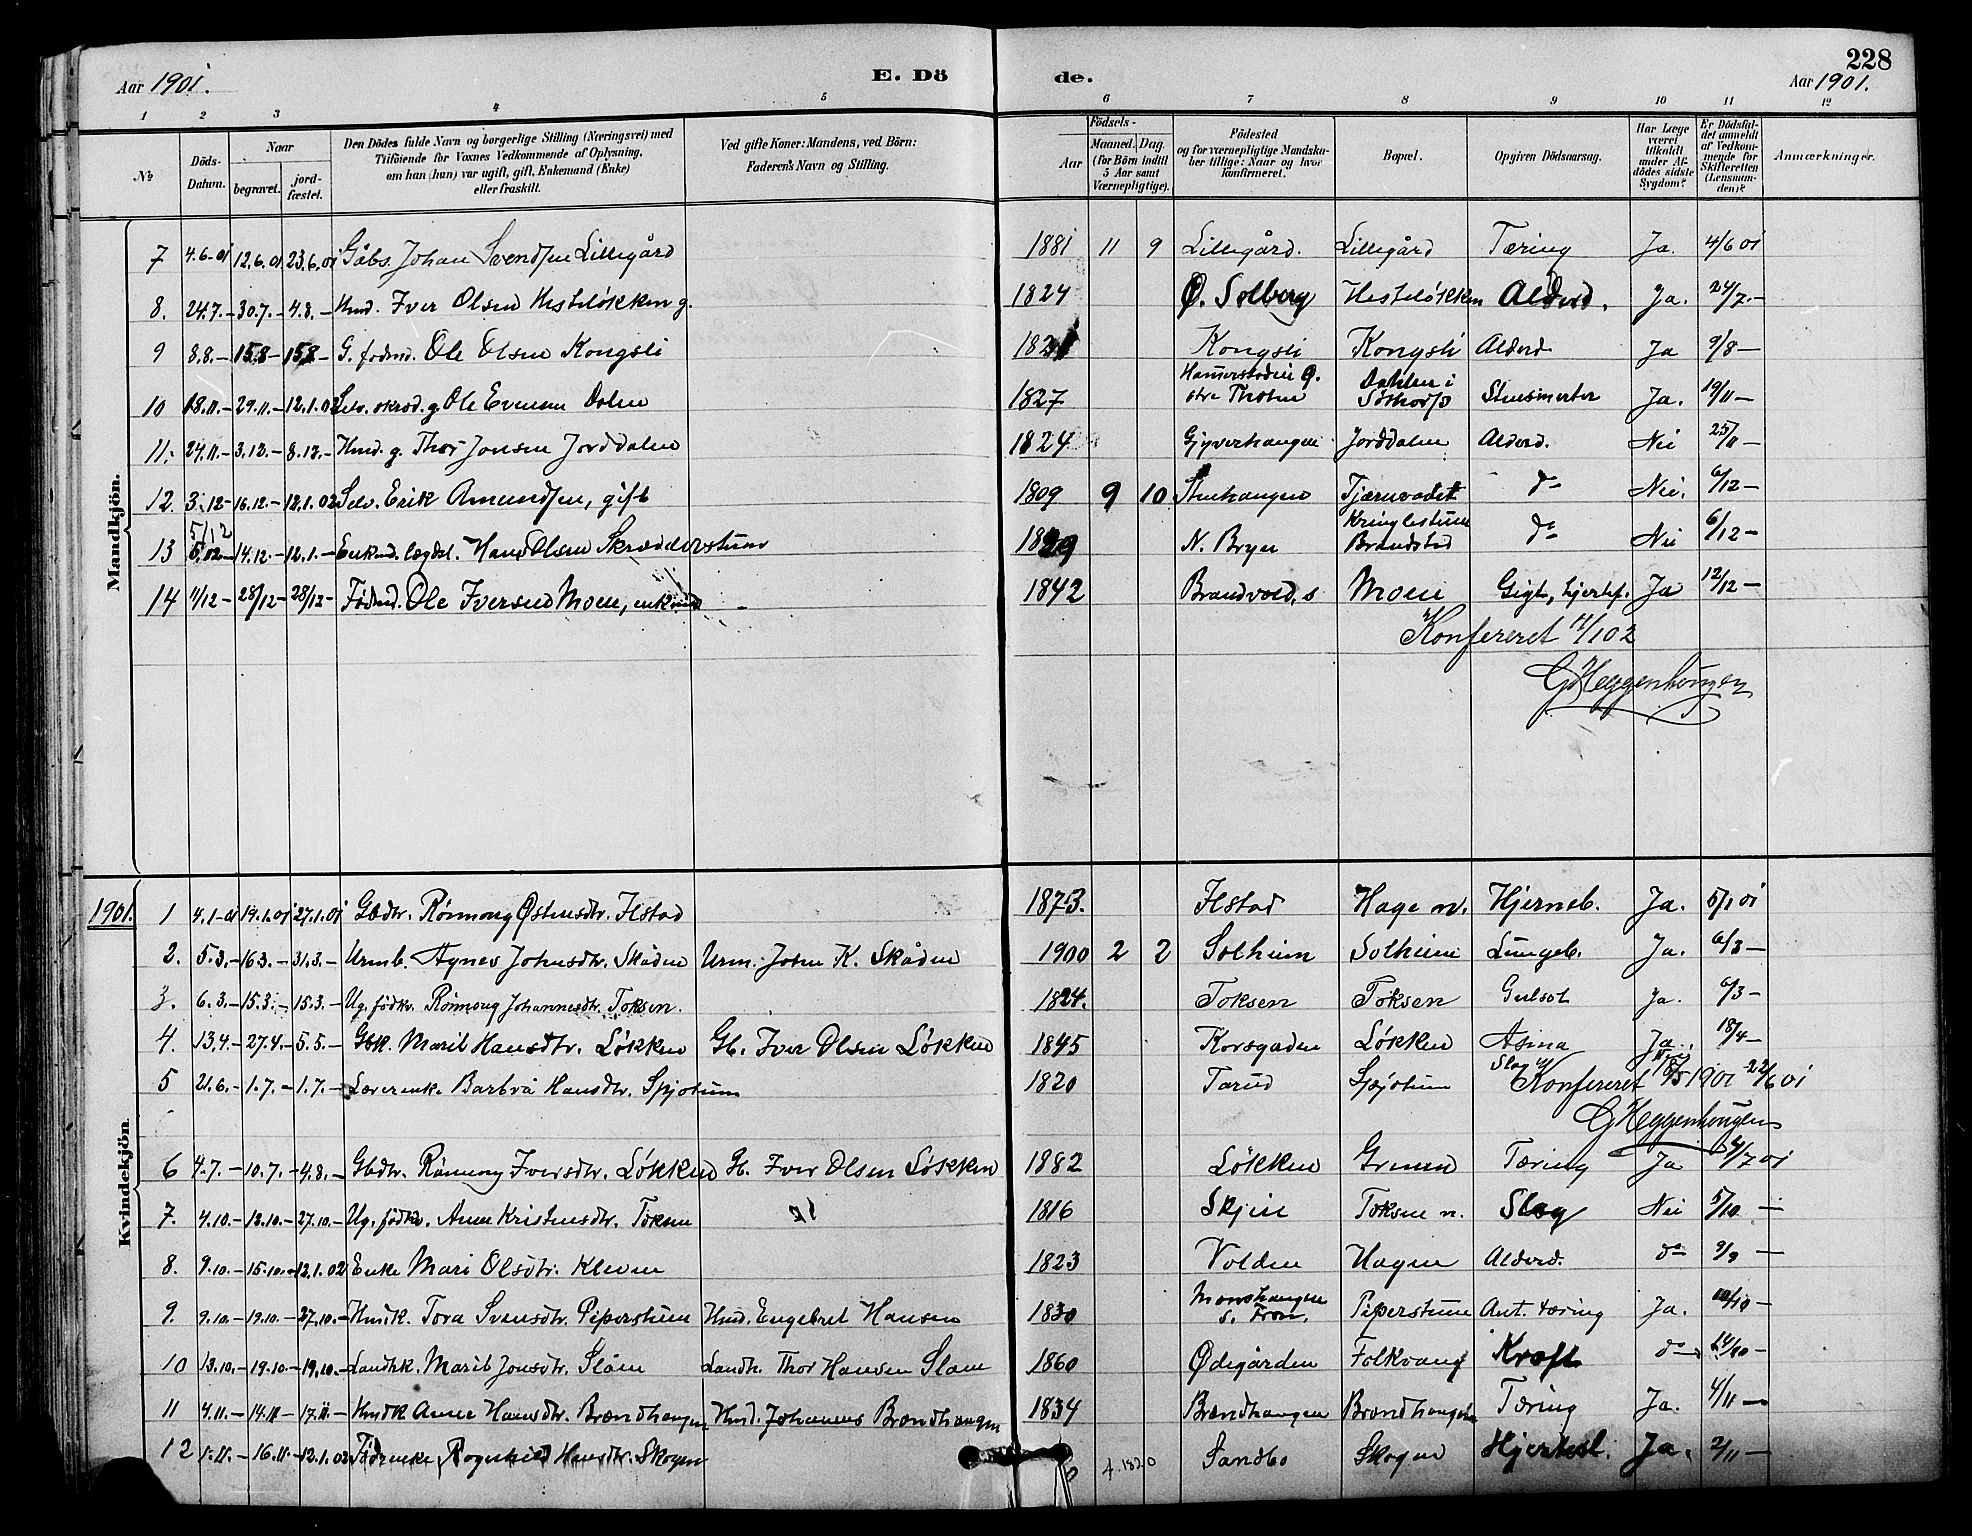 228
Aar 1901. E. Dö de. Aar 1901.
1 2 3 4 5 6 7 8 9 10 11 12
No Döds-Datum. Naar begravet. jordfæstet. Den Dödes fulde Navn og borgerlige Stilling (Næringsvei) med Tilföiende for Voxnes Vedkommende af Oplysning, om han (hun) var ugift, gift, Enkemand (Enke) eller fraskilt. Ved gifte Koner: Mandens, ved Börn: Faderen's Navn og Stilling. Födsels- Aar Maaned. Dag. (for Börn indtil 5 Aar samt Værnepligtige). Födested og for værnepligtige Mandskaber tillige: Naar og hvor konfirmeret. Bopæl. Opgiven Dödsaarsag. Har Læge været tilkaldt under Afdödes sidste Sygdom? Er Dödsfaldet anmeldt af Vedkommende for Skifteretten (Lensmanden)? Anmærkninger.
Mandkjön.
7 4.6.-01 12.6.01 23.6.01 Gåbs. Johan Svendsen Lillegård 1881 11 9 Lillegård. Lillegård Tæring Ja. 4/6 01
8. 24.7.- 30.7.- 4.8.- Hmd. Iver Olsen Hesteløkken g. 1824 Ø. Solberg Hesteløkken Alderd. Ja. 24/7.-
9 8.8.- 15.8- 15.8- G. fodmd. Ole Olsen Kongsli 1821 Kongsli Kongsli Alderd. Ja 9/8-
10 18.11.- 29.11.- 12.1.02 Selv. skrod. g. Ole Evensen Dalen 1827 Østre Thoten Dahlen i Ja. 19/11-
11.- 24.11.- 3.12.- 8.12.- Hmd. g. Thor Jonsen Jorddalen 1824 Gyverhangen Jorddalen Alderd. Nei 25/11-
12. 3.12- 16.12.- 12.1.02 Selv. Erik Amundsen, gift 1809 9 10 Stuehangen Tjærnvadet do Nei. 6/12-
13 5/12 5.02- 14.12.- 12.1.- Enkmd. lægdsl. Hans Olsen Skrædderstuen 1829 N. Bryn Kringlestuen Brandstad do Nei 6/12-
14 11/12- 28/12- 28/12- Fødmd. Ole Iversen Moen, enkmd 1842 Brandvold, s Moen Gigt, hjertef. Ja 12/12-
Konfereret 11/1 02
G Heggenhougen
1901. Kvindekjön.
1 4.1-01 19.1.01 27.1.01 Gbdtr. Rønnong Østensdtr. Ilstad 1873. Ilstad Hage n. Hjerneb. Ja. 5/1 01
2. 5.3.- 16.3.- 31.3.- Urmb. Agnes Johnsdtr. Skåden Urm. John K. Skåden 1900 2 2 Solheim Solheim Lungeb. Ja. 6/3-
3. 6.3.- 15.3.- 15.3.- Ug. fødkv. Rønnong Johannesdtr. Toksen. 1824. Toksen Toksen Gulsot Ja. 6/3-
4. 13.4.- 27.4.- 5.5.- Gbk. Marit Hansdtr. Løkken Gb. Iver Olsen Løkken 1845 Korsgaden Løkken Asma Ja.. 18/4-
5 21.6.- 1.7.- 1.7.- Lærerenke Barbra Hansdtr. Spjotum 1820 Tarud Spjotum Slag 22/6 01
Konfereret 18/5 1901
G Heggenhougen
6 4.7.- 10.7.- 4.8.- Gbdtr. Rønnong Iversdtr. Løkken Gb. Iver Olsen Løkken 1882 Løkken Grinen Tæring Ja 4/7 01
7. 4.10.- 12.10.- 27.10.- Ug. fødkv. Anne Kristensdtr. Toksen 1816 Skjen Toksen n. Slag Nei 5/10-
8. 9.10.- 15.10.- 12.1.02 Enke Mari Olsdtr. Kleven 1823 Volden Hagen Alderd. do 9/9-
9. 9.10.- 19.10.- 27.10.- Hmdk. Tora Svensdtr. Piperstuen Hmd. Engebret Hansen 1830 Monshaugen s. Fron. Piperstuen Ant. tæring Ja. 10/10-
10 13.10.- 19.10.- 19.10.- Landhk. Marit Jonsdtr. Slåen Landh. Thor Hansen Slåen 1860 Ødegården Folkvang Kræft do 14/10-
11 4.11.- 14.11- 17.11.- Hmdk Anne Hansdtr. Brændhaugen Hmd. Johannes Brændhaugen 1834 Brændhaugen Brændhaugen Tæring Ja. 4/11-
12 1.11.- 16.11- 12.1.02 Fødrenke Rognhild Hansdtr. Skogen f. 1820 Sandbo Skogen Ja. 2/11-